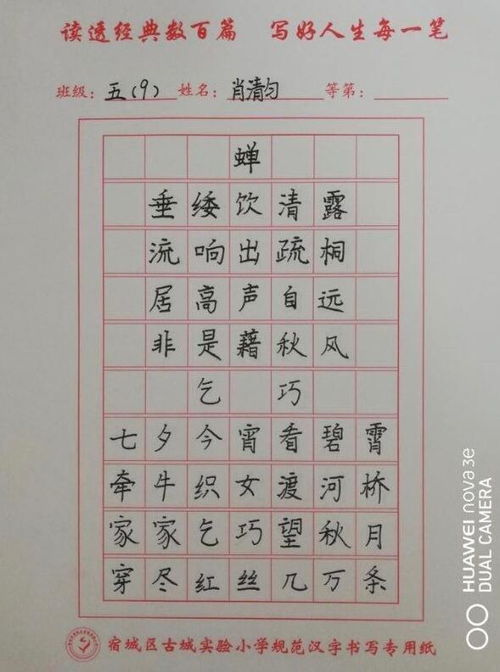 读透经典数百篇 写好人生每一笔
班级：五(9) 姓名：肖清匀 等第：
蝉
垂緌饮清露
流响出疏桐
居高声自远
非是藉秋风
乞巧
七夕今宵看碧霄
牵牛织女渡河桥
家家乞巧望秋月
穿尽红丝几万条
宿城区古城实验小学规范汉字书写专用纸
HUAWEI nova 3e
DUAL CAMERA